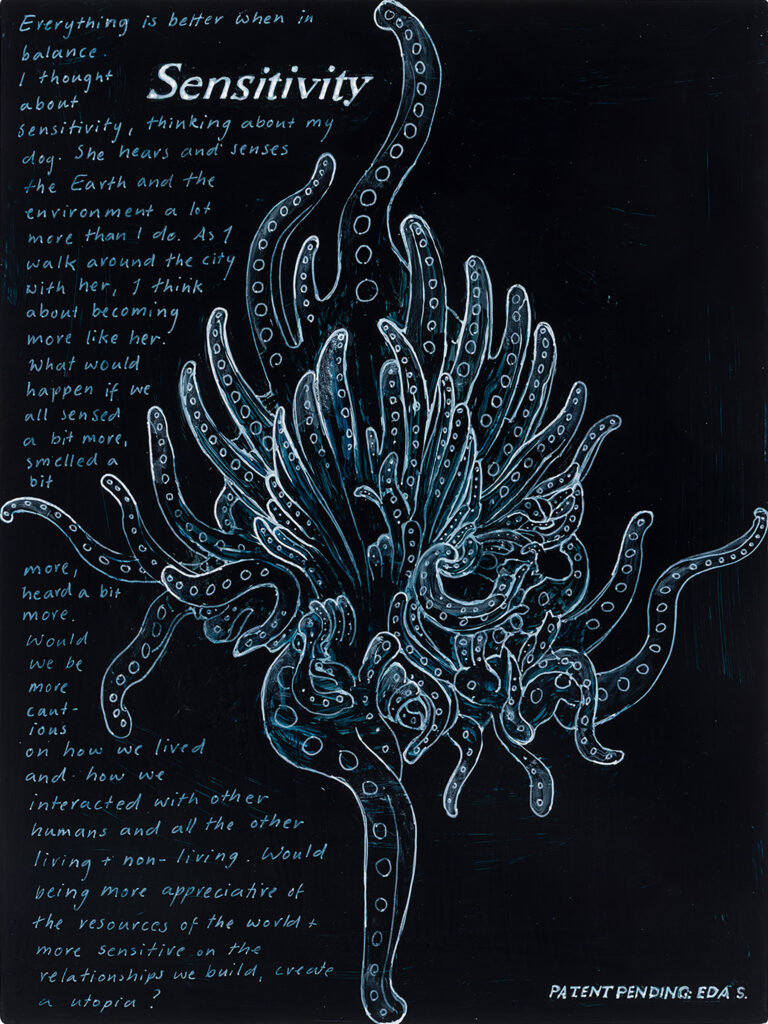 Everything is better when in
balance.
I thought
about
sensitivity, thinking about my
dog. She hears and senses
the Earth and the
environment a lot
more than I do. As I
walk around the city
with her, I think
about becoming
more like her.
What would
happen if we
all sensed
a bit more,
smelled a
bit
more,
heard a bit
more.
Would
we be
more
caut-
ious
on how we lived
and how we
interacted with other
humans and all the other
living + non-living. Would
being more appreciative of
the resources of the world +
more sensitive on the
relationships we build, create
a utopia?
Sensitivity
PATENT PENDING: EDA S.